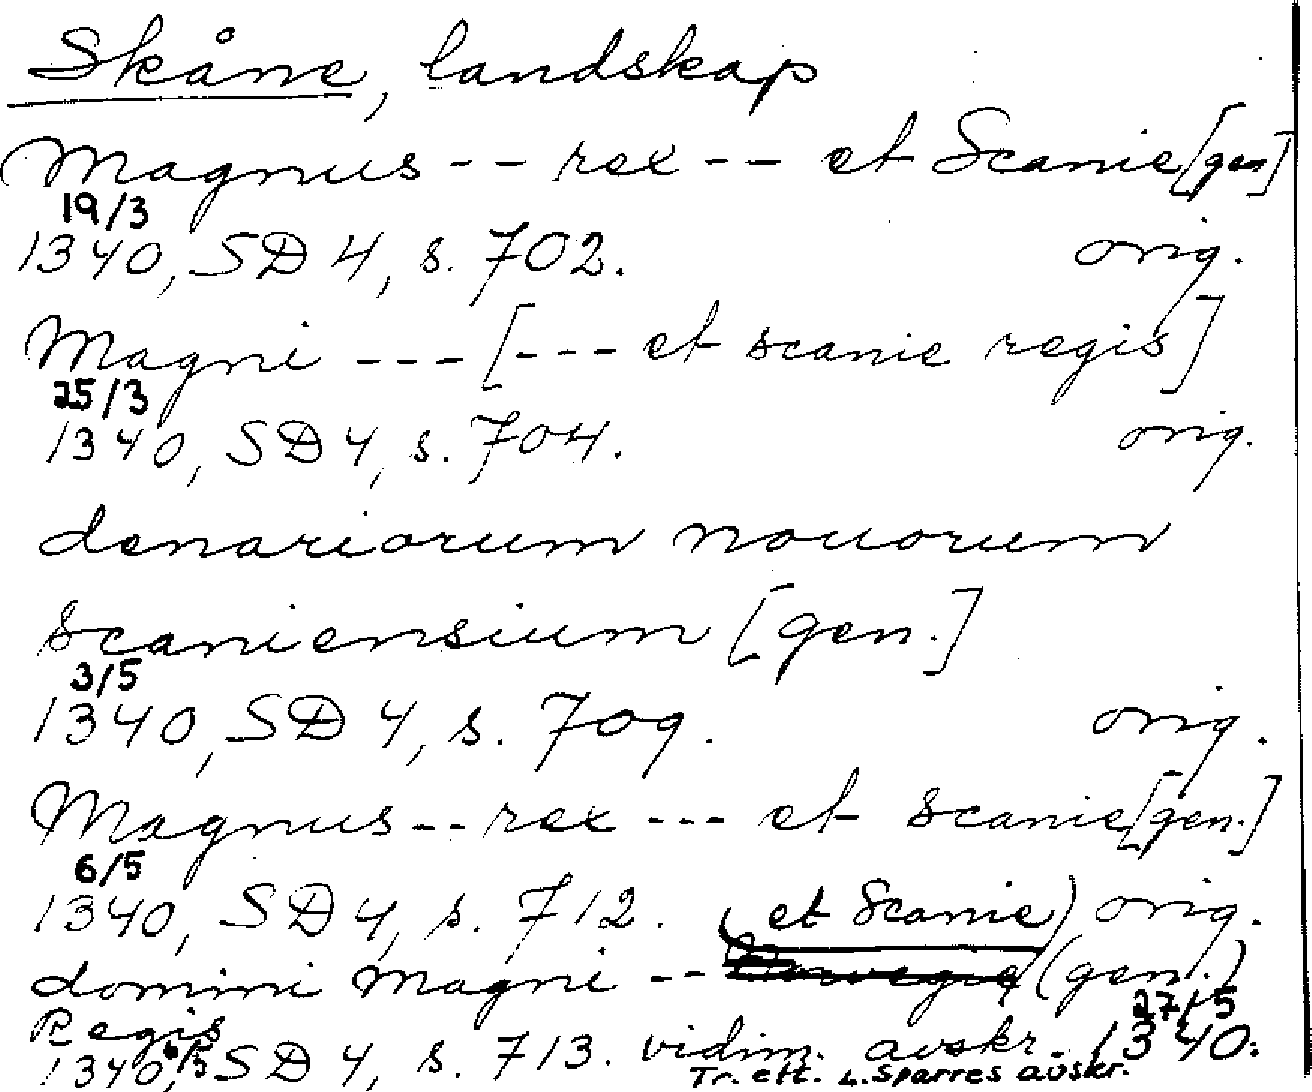 Skåne, landskap
Magnus -- rex -- et Scanie [gen]
19/3
1340, SD 4, s. 702. orig.
Magni --- [--- et scanie regis]
25/3
1340, SD 4, s. 704. orig.
denariorum nouorum
scaniensium [gen.]
3/5
1340, SD 4, s. 709. orig.
Magnus -- rex --- et scanie [gen.]
6/5
1340, SD 4, s. 712. orig.
(et Scanie)
domini Magni -- Norwegie (gen.)
Regis 27/5
1340, 6/5 SD 4, s. 713. vidim. avskr. 1340.
Tr. eft. L. Sparres avskr.